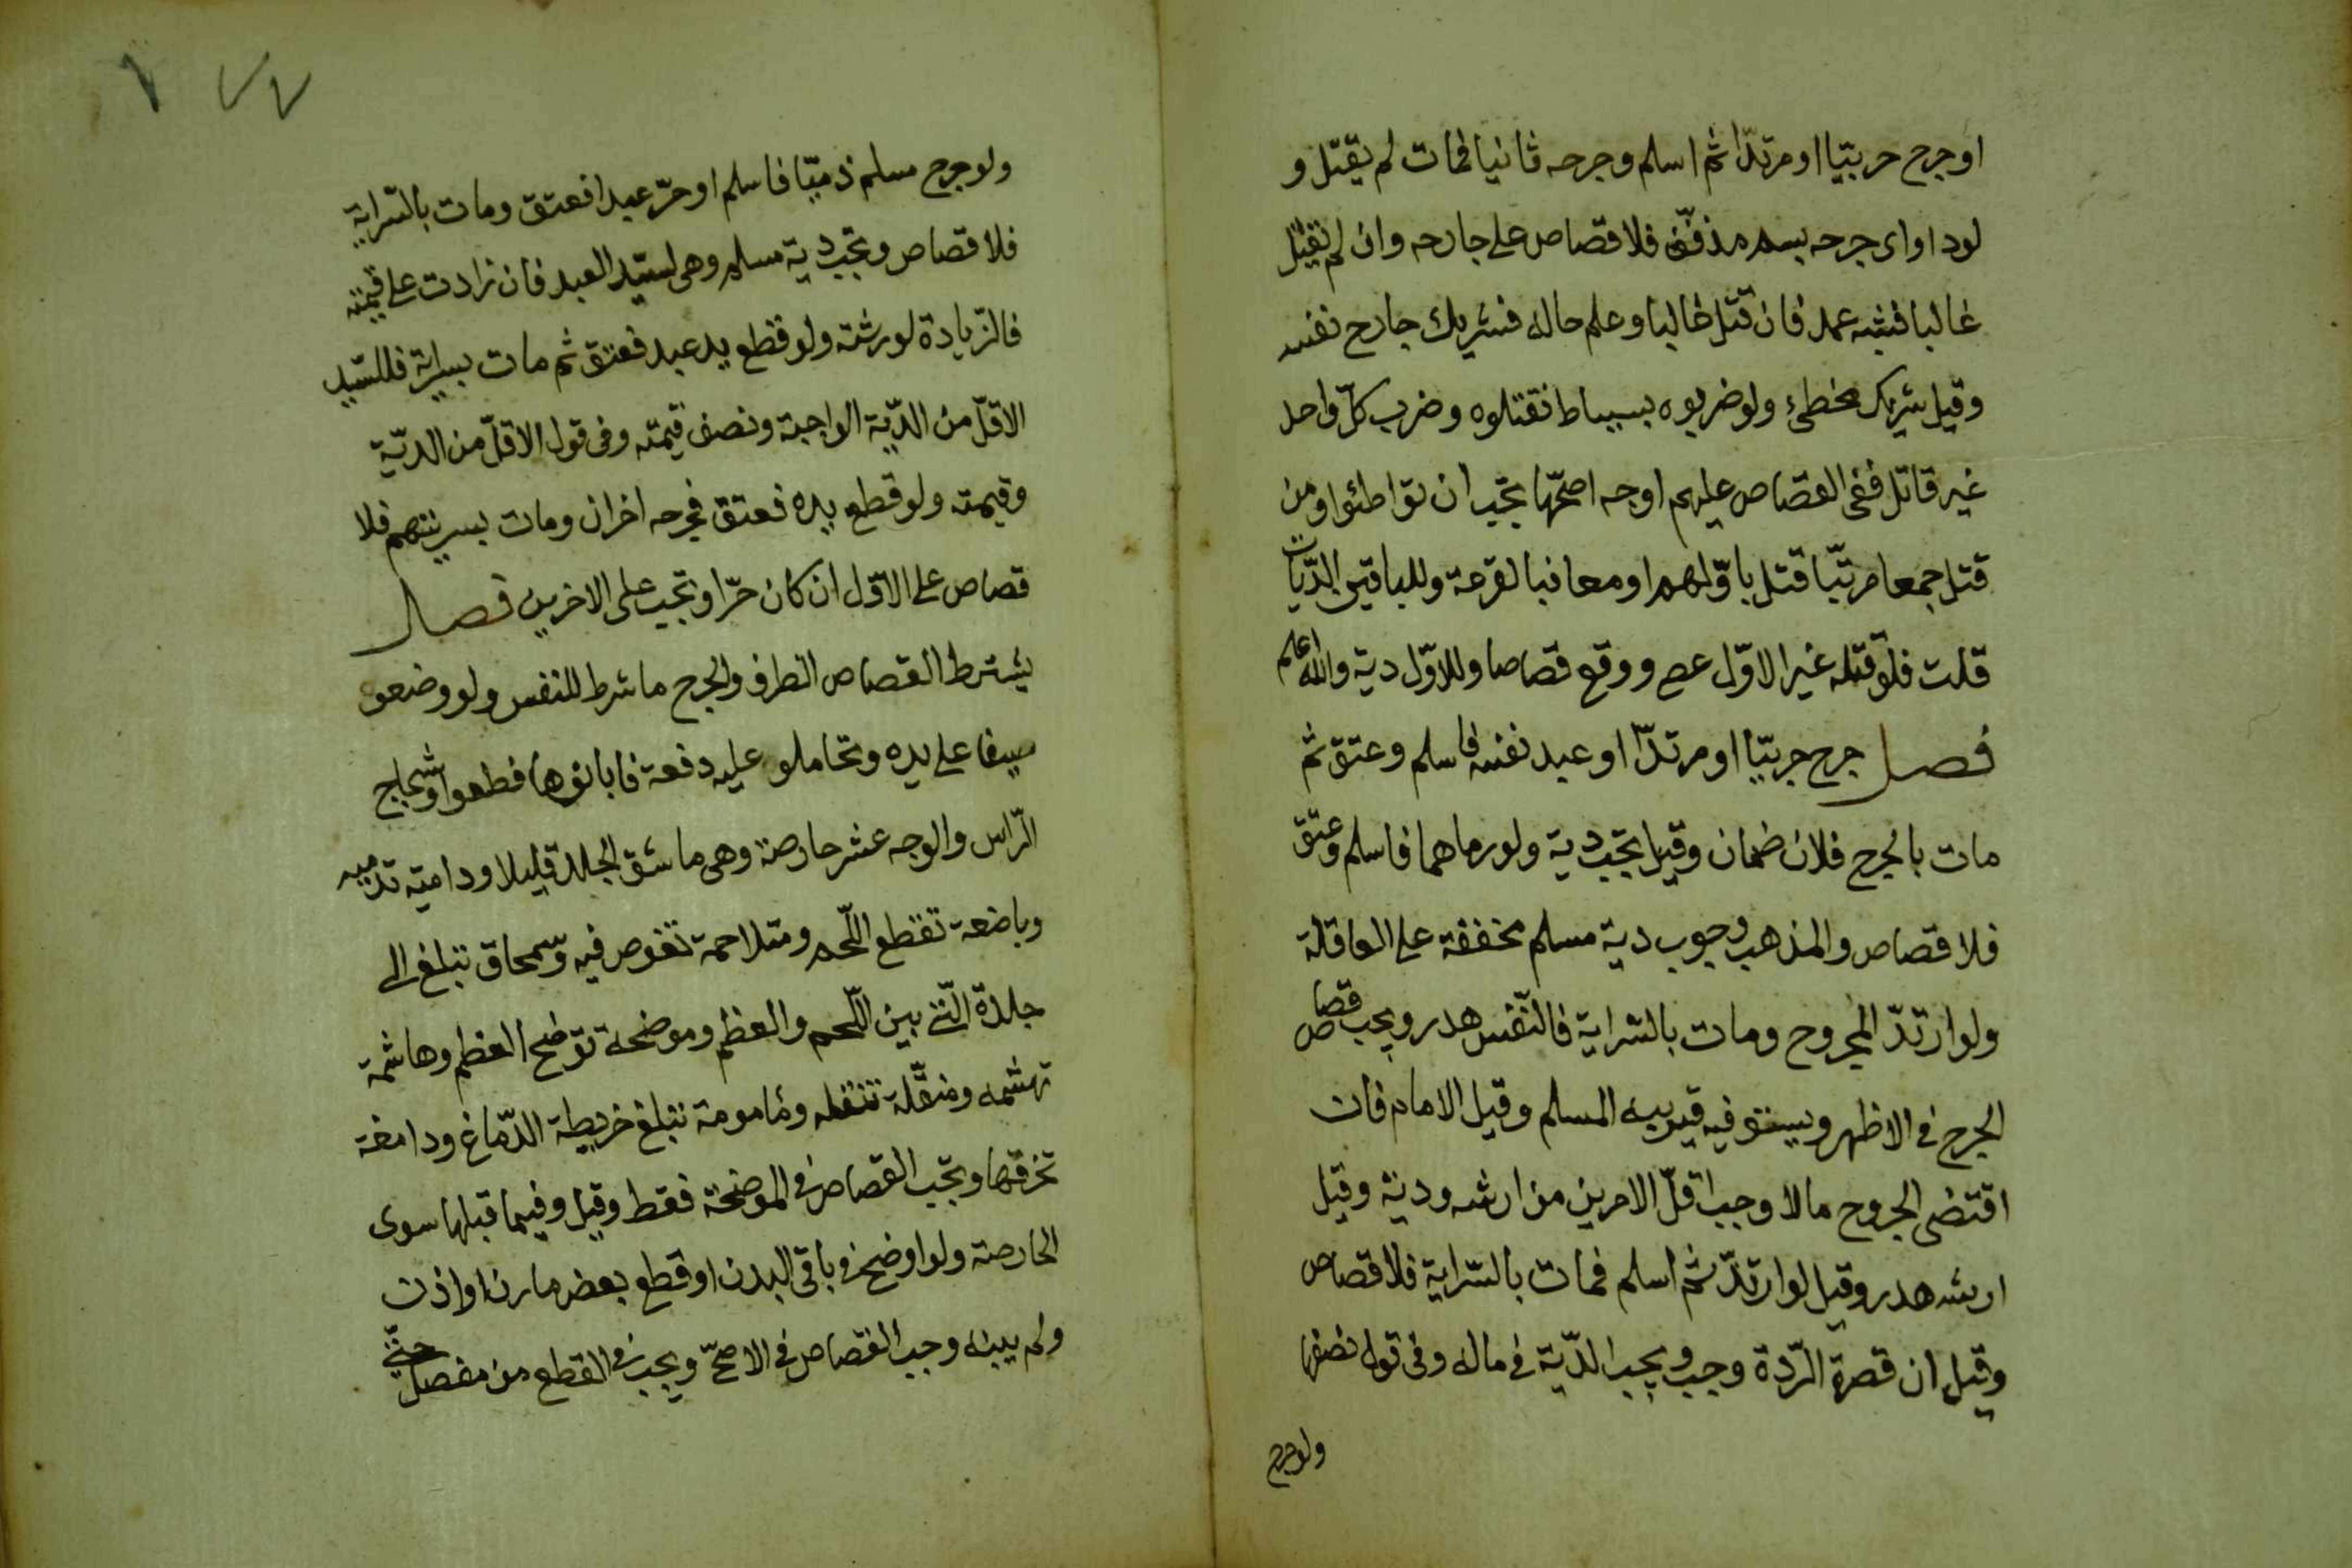 اوجرح حربيّا اومرتدّا ثم اسلم وجرحه ثانيا فمات لم يقتل و
لوداوى جرحه بسم مذفّف فلا قصاص على جارحه وان لم يقتل
غالبا فشبه عمد فان قتل غالبا وعلم حاله فشريك جارح نفسه
وقيل شريك مخطئ ولوضربوه بسياط فقتلوه وضرب كلّ واحد
غير قاتل ففى القصاص عليهم اوجه اصحّها يجب ان تواطئوا ومن
قتل جمعا مرتّبا قتل باوّلهم اومعا فبالقرعة وللباقين الدّيات
قلت فلو قتله غير الاوّل عصى ووقع قصاصا وللاوّل دية والله اعلم
فصل جرح حربيّا اومرتدّا اوعبد نفسه فاسلم وعتق ثم
مات بالجرح فلا ضمان وقيل تجب دية ولورماهما فاسلم وعتق
فلا قصاص والمذهب وجوب دية مسلم مخففة على العاقلة
ولوارتدّ المجروح ومات بالسراية فالنّفس هدر ويجب قصاص
الجرح فى الاظهر ويستوفيه قريبه المسلم وقيل الامام فان
اقتضى الجروح مالا وجب اقلّ الامرين من ارشه ودية وقيل
ارشه هدر وقيل لوارتدّ ثم اسلم فمات بالسّراية فلا قصاص
وقيل ان قصرة الرّدة وجب ويجب الدّية فى ماله وفى قول نصفها
ولوجرح
ولوجرح مسلم ذميّا فاسلم اوحرّ عبدا فعتق ومات بالسّراية
فلا قصاص وتجب دية مسلم وهى لسيّد العبد فان زادت على قيمته
فالزّيادة لورثته ولوقطع يد عبد فعتق ثم مات بسراية فللسّيد
الاقلّ من الدّية الواجبة ونصف قيمته وفى قول الاقلّ من الديّة
وقيمته ولوقطع يده فعتق فجرحه اخران ومات بسرايتهم فلا
قصاص على الاوّل ان كان حرّا وتجب على الاخرين فصل
يشترط القصاص الطرف والجرح ما شرط للنفس ولو وضعو
سيفا على يده وتحاملو عليه دفعة فابانوها قطعوا وشجاج
الرّاس والوجه عشر حارصة وهى ما شق الجلد قليلا ودامية تدميه
وباضعة تقطع اللّحم ومتلاحمة تغوص فيه وسّمحاق تبلغ الى
جلدة الّتى بين اللّحم والعظم وموضحة توضح العظم وهاشمة
تهشمه ومنقّلة تنقله ومامومة تبلغ خريطة الدّماغ ودامغة
تخرقها وتجب القصاص فى الموضحة فقط وقيل وفيما قبلها سوى
الحارصة ولواوضح فى باقى البدن اوقطع بعض مارن اواذن
ولم يبنه وجب القصاص فى الاصحّ ويجب فى القطع من مفصل حتّى